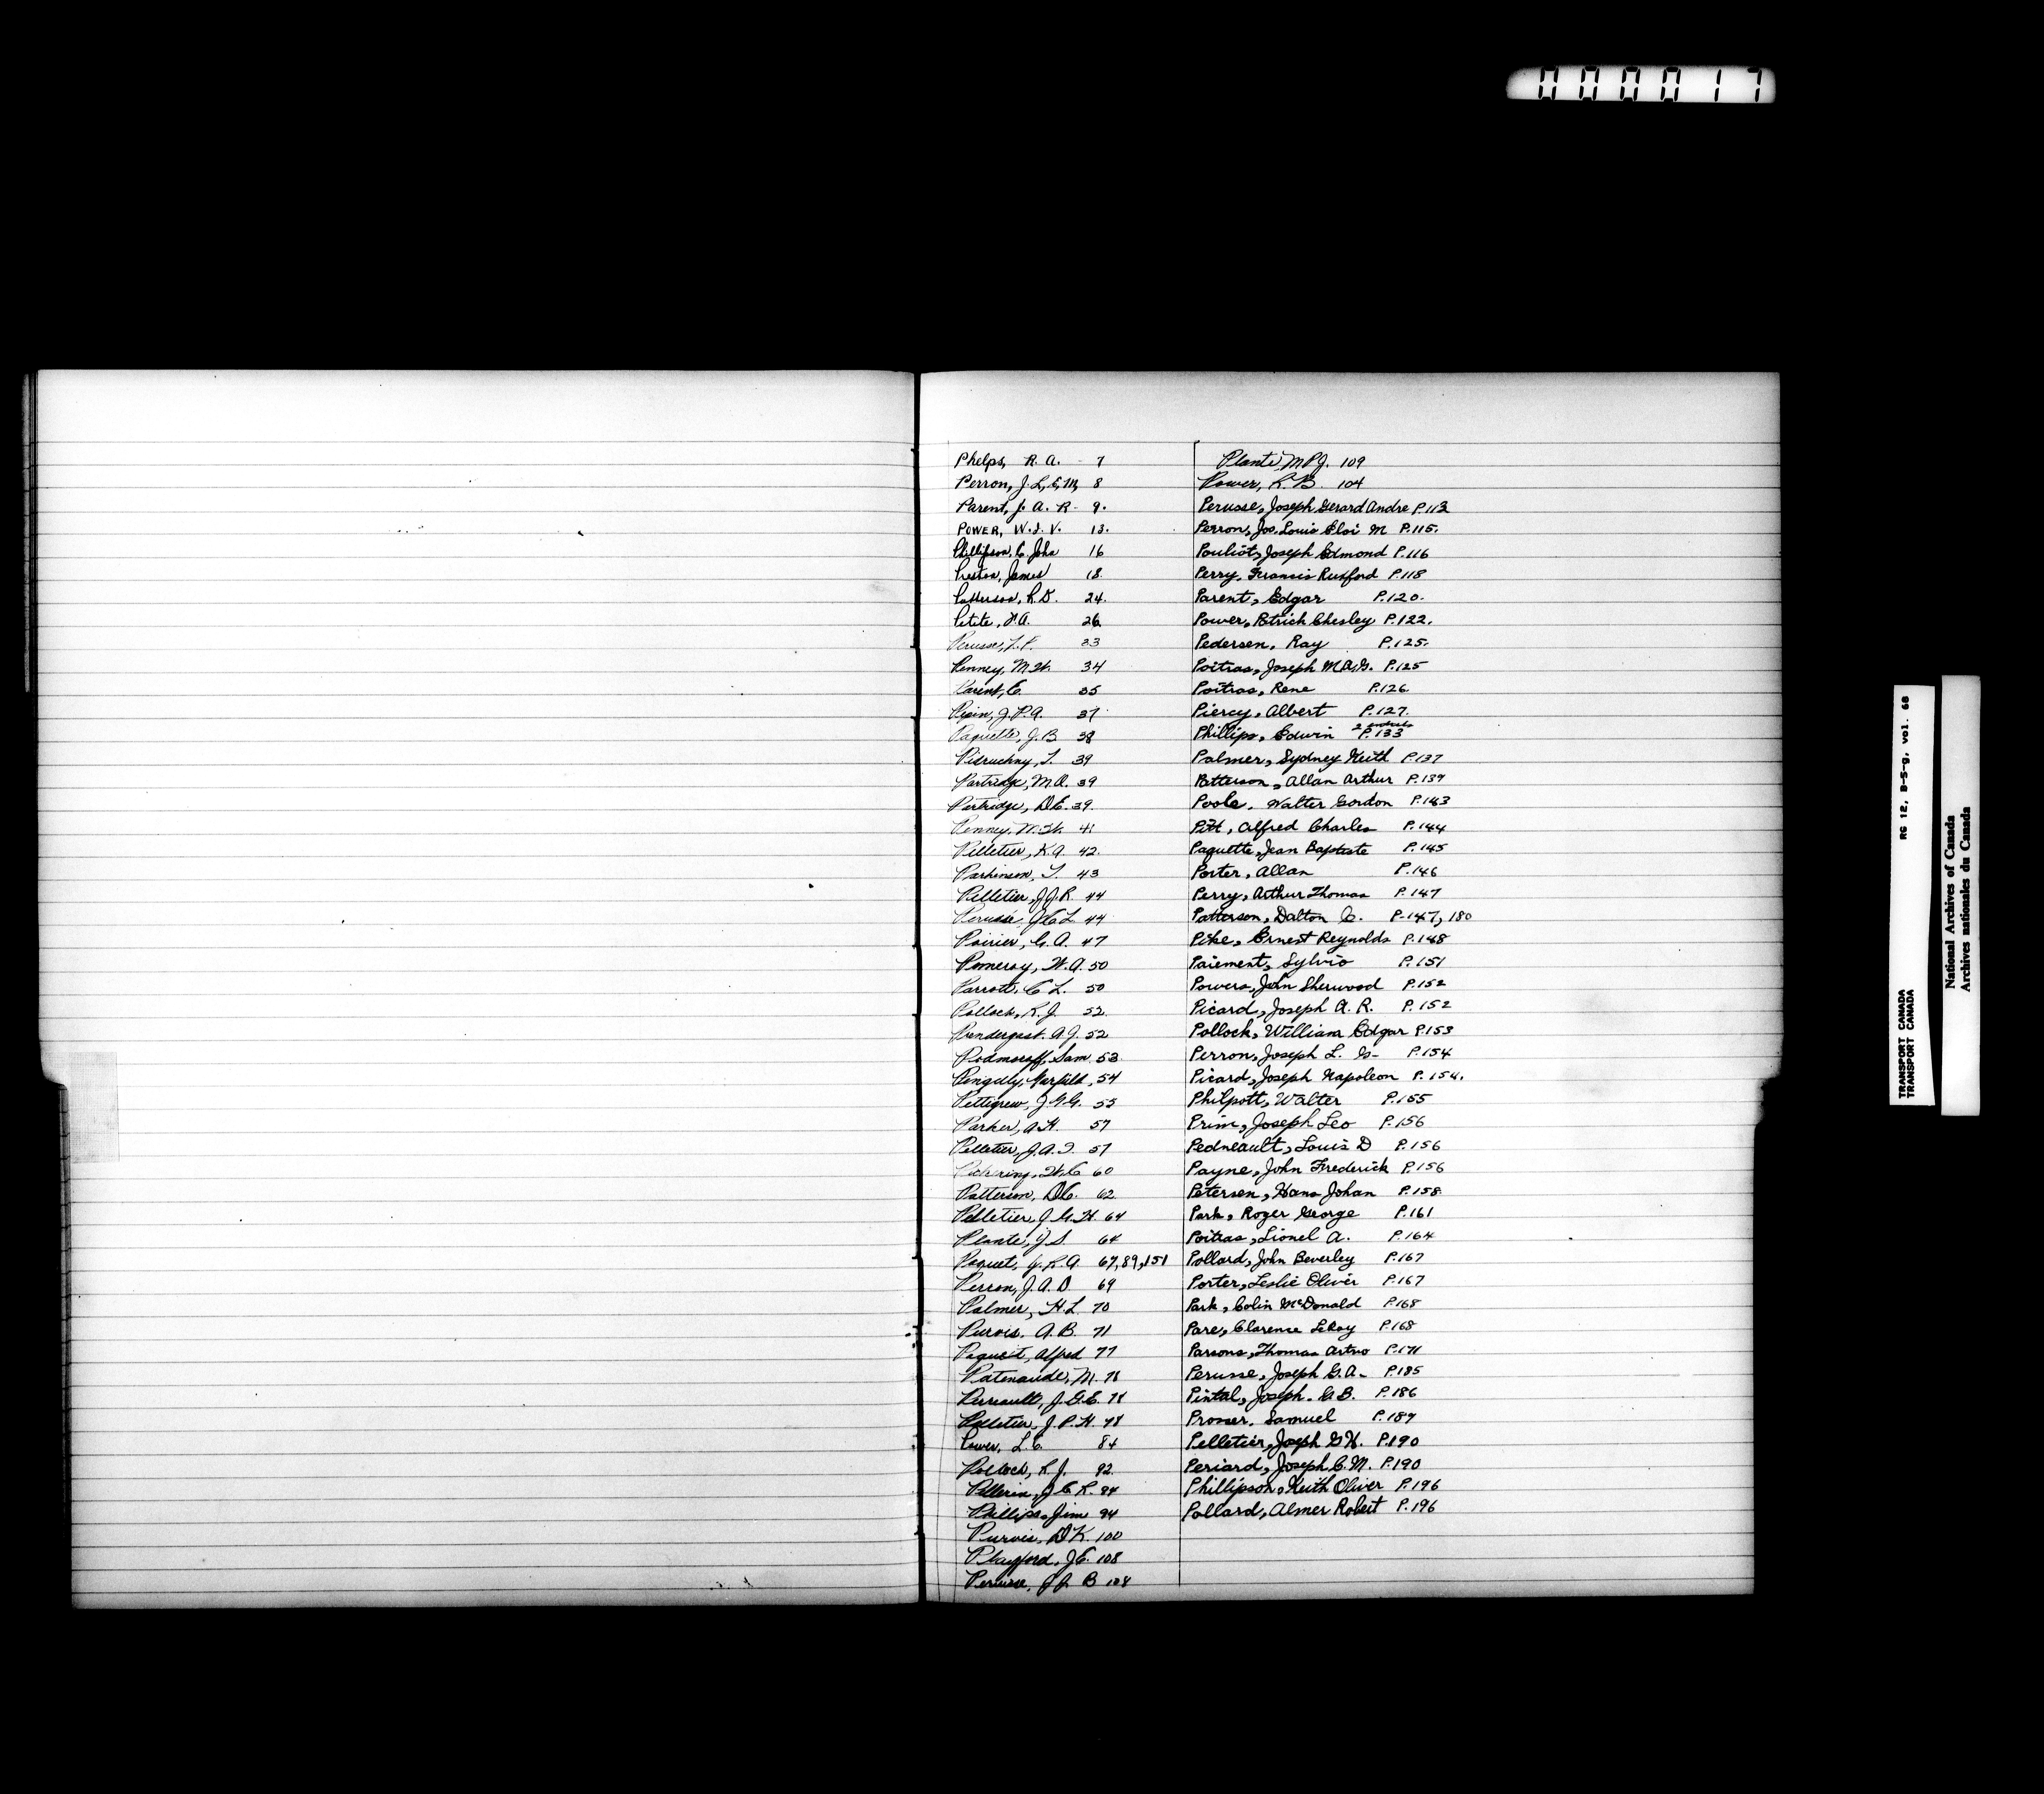 000017
Phelps, R. A. - 7
Perron, J. L. E. M. 8
Parent, J. A. R. 9.
POWER, W. J. V. 13.
Phillipson, C. John 16
Preston, James 18
Patterson, R. D. 24.
Petite, F. A. 26
Perusse, L. P. 33
Penney, M. W. 34
Parent, E. 35
Pepin, J. P. A. 37
Paquette, J. B 38
Pidruchny, T. 39
Partridge, M. A. 39
Partridge, D. E. 39.
Penney, M. W. 41
Pelletier, K. A. 42.
Parkinson, T. 43
Pelletier, J. J. R. 44
Perusse, J. C. L. 44
Poirier, G. A. 47
Pomeroy, W. A. 50
Parrott, C. L. 50
Pollock, R. J. 52.
Prendergast, A. J. 52
Podmoroff, Sam. 53.
Pengelly, Garfield, 54
Pettigrew, J. G. G. 55
Parker, A. H. 57
Pelletier, J. A. I. 57
Pickering, W. C. 60
Patterson, D. E. 62
Pelletier, J. G. H. 64
Plante, J. S. 64
Paquet, J. R. A. 67, 89, 151
Perron, J. A. D 69
Palmer, H. L. 70
Purvis, A. B. 71
Paquet, Alfred 77
Patenaude, M. 78
Perreault, J. G. E. 78
Pelletier, J. P. H. 78
Power, L. C. 84
Pollock, R. J. 92
Pellerin, J. C. R. 94
Phillips, Jim 94
Purvis, D. K. 100
Playford, J. C. 108
Perusse, J. J. B 108
Plante, M P J. 109
Power, R. B. 104
Perusse, Joseph Gerard Andre P. 113
Perron, Jos. Louis Eloi M P. 115.
Pouliot, Joseph Edmond P. 116
Perry, Francis Rexford P. 118
Parent, Edgar P. 120.
Power, Patrick Chesley P. 122.
Pedersen, Ray P. 125.
Poitras, Joseph M. A. G. P. 125
Poitras, Rene P. 126.
Piercy, Albert P. 127.
Phillips, Edwin 2 entries P. 133
Palmer, Sydney Keith P. 137
Patterson, Allan Arthur P. 139
Poole, Walter Gordon P. 143
Pitt, Alfred Charles P. 144
Paquette, Jean Baptiste P. 145
Porter, Allan P. 146
Perry, Arthur Thomas P. 147
Patterson, Dalton G. P. 147, 180
Pike, Ernest Reynolds P. 148
Paiement, Sylvio P. 151
Powers, John Sherwood P. 152
Picard, Joseph A. R. P. 152
Pollock, William Edgar P. 153
Perron, Joseph L. G- P. 154
Picard, Joseph Napoleon P. 154.
Philpott, Walter P. 155
Prim, Joseph Leo P. 156
Pedneault, Louis D P. 156
Payne, John Frederick P. 156
Petersen, Hans Johan P. 158.
Park, Roger George P. 161
Poitras, Lionel A. P. 164
Pollard, John Beverley P. 167
Porter, Leslie Oliver P. 167
Park, Colin McDonald P. 168
Pare, Clarence LeRoy P. 168
Parsons, Thomas P. 171
Perusse, Joseph G. A- P. 185
Pintal, Joseph. G. B. P. 186
Prosser, Samuel P. 189
Pelletier, Joseph G. H. P. 190
Periard, Joseph C. M. P. 190
Phillipson, Keith Oliver P. 196
Pollard, Almer Robert P. 196
TRANSPORT CANADA RG 12, B-5-g, vol. 68
TRANSPORT CANADA
National Archives of Canada
Archives nationales du Canada